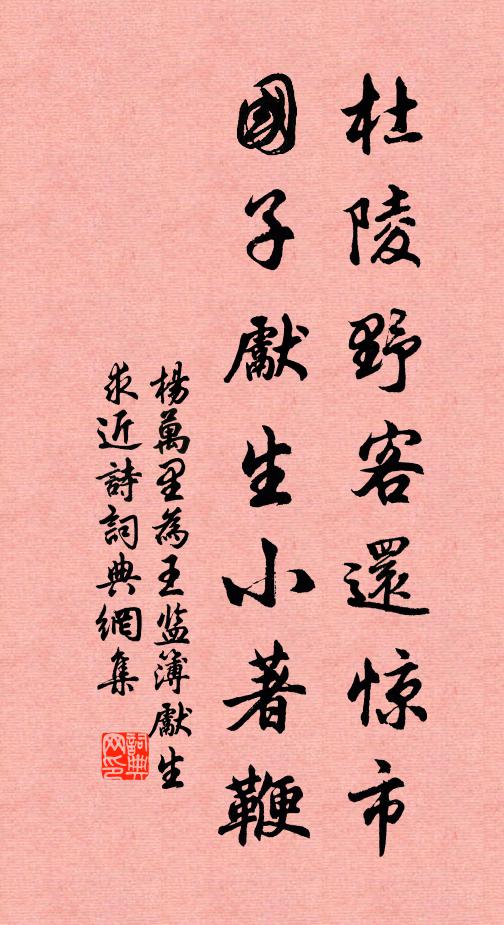 杜陵野客還惊市
國子獻生小著鞭
楊萬里為王监簿獻生
求近詩詞典網集
詞典網印